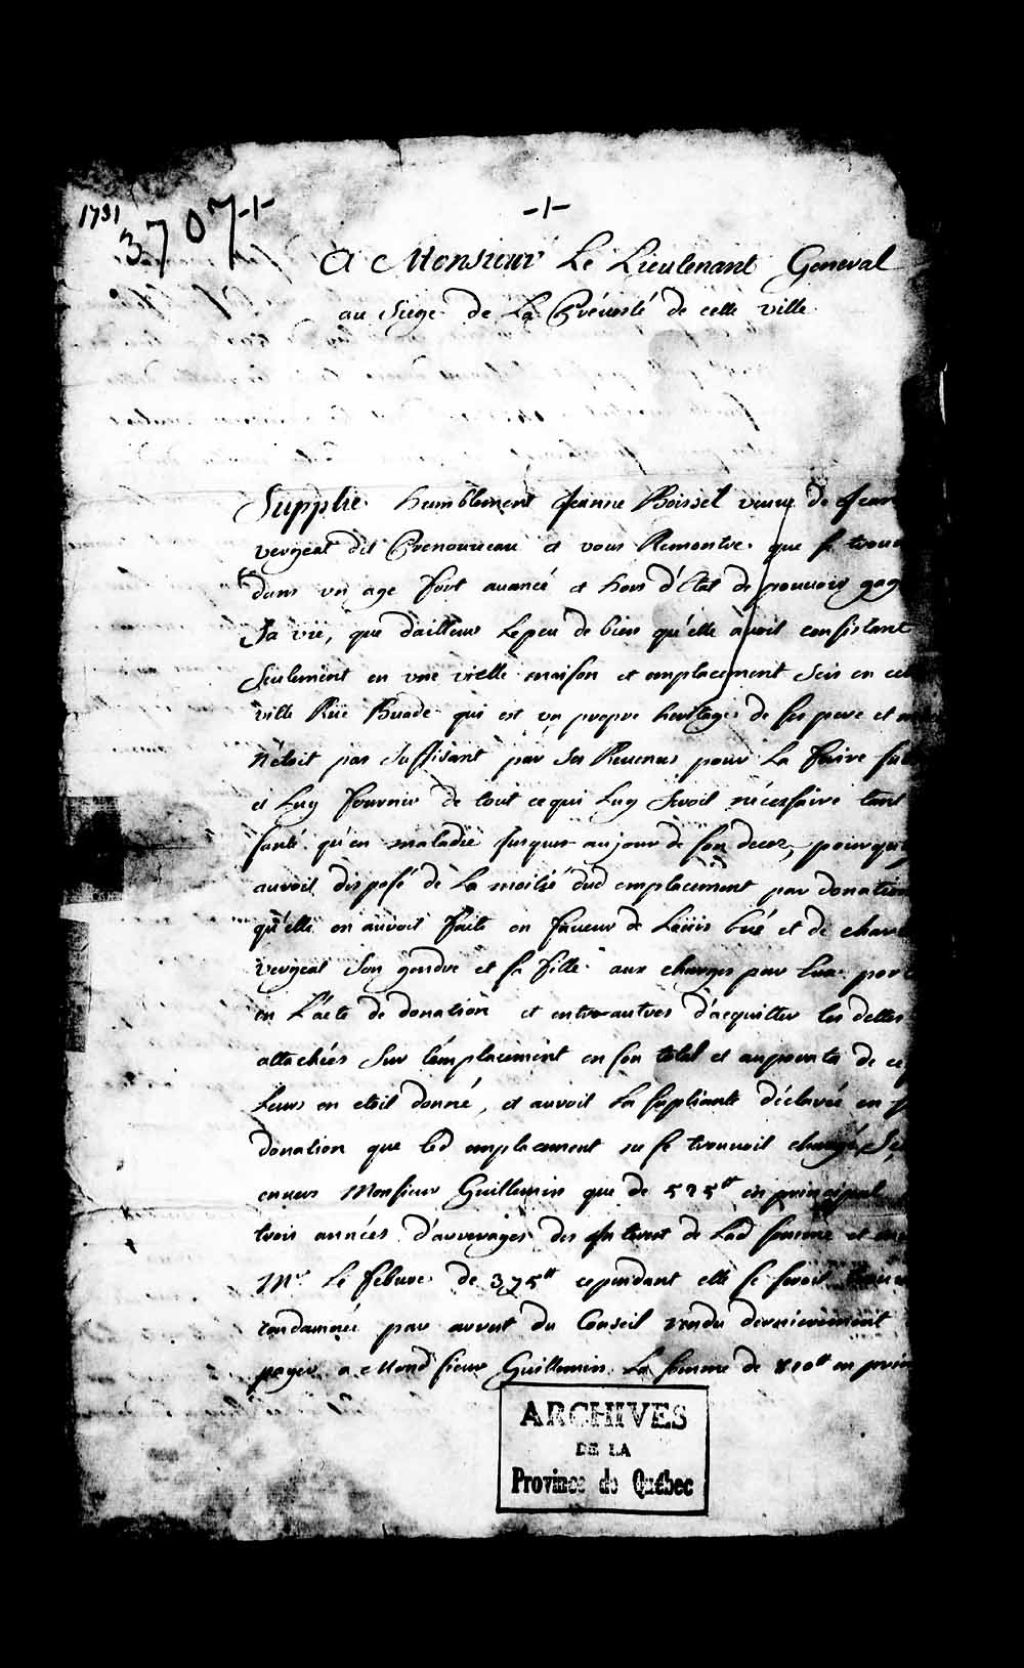 1731
3707 -1-
-1-
A Monsieur Le Lieutenant General
au Siege de La Prévosté de cette ville
Supplie humblement Jeanne Boissel veuve de Jean
vergeat dit Prenouveau et vous Remontre que se trou
dans un age fort avancé et hors d'état de pouvoir gag
Sa vie, que d'ailleurs Le peu de bien qu'elle avoit consistant
Seulement en une vielle maison et emplacement scis en cet
ville Rüe Buade qui est un propre heritage de ses pere et
n'étoit pas Suffisant par ses Revenus pour La faire su
et Luy fournir de tout ce qui Luy Seroit nécessaire tant
santé qu'en maladie jusques au jour de son deces, pourquoy
auroit disposé de La moitié dud emplacement par donation
qu'elle en auroit faite en faveur de Louis bué et de char
vergeat Son gendre et sa fille aux charges par Eux por
en L'acte de donation et entre autres d'acquitter les dettes
attachées Sur l'emplacement en son total et au prorata de ce
Leurs en etoit donné, et auroit La supliante déclarée en
donation que led emplacement ne se trouvoit chargé
envers Monsieur Guillemin que de 525tt en principal
trois années d'arrerages des Interest de Lad somme et en
Mr. Le febure de 375tt cependant elle se seroit
condamnée par arrest du Conseil rendu dernierement
payer a Mond sieur Guillemin La somme de 810tt en prin
ARCHIVES
DE LA
Province de Québec